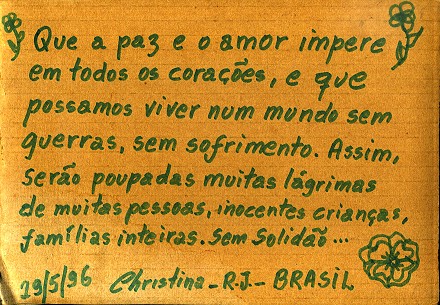 Que a paz e o amor impere
em todos os corações, e que
possamos viver num mundo sem
guerras, sem sofrimento. Assim,
serão poupadas muitas lágrimas
de muitas pessoas, inocentes crianças,
famílias inteiras. Sem Solidão ...
29/5/96 Christina - R.J. - BRASIL